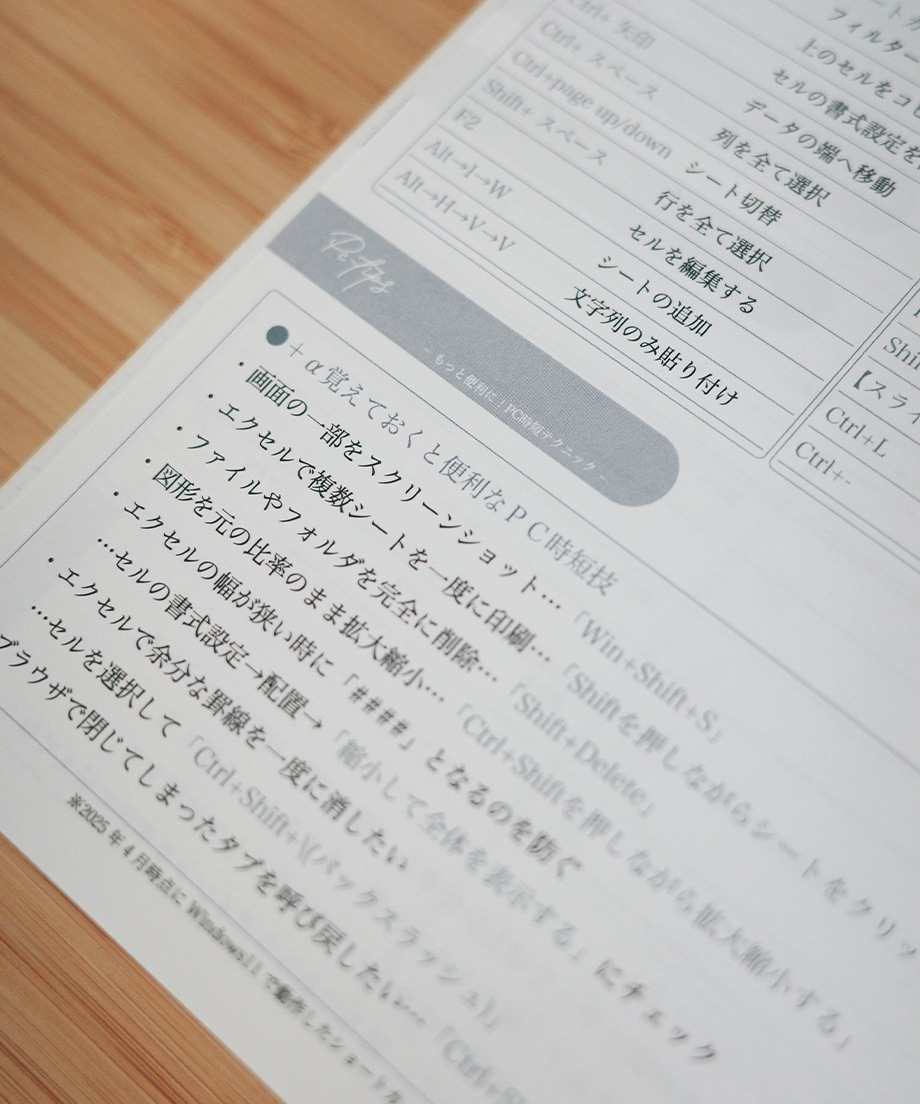 フィルター
上のセルをコ
セルの書式設定を
Ctrl+ 矢印 データの端へ移動
Ctrl+ スペース 列を全て選択
Ctrl+page up/down シート切替
Shift+ スペース 行を全て選択
F2 セルを編集する
Alt→I→W シートの追加
Alt→H→V→V 文字列のみ貼り付け
【スラ
Ctrl+L
Ctrl+-
Pc tips
- もっと便利に！PC時短テクニック -
●+α覚えておくと便利なＰＣ時短技
・画面の一部をスクリーンショット…「Win+Shift+S」
・エクセルで複数シートを一度に印刷…「Shiftを押しながらシートをクリッ
・ファイルやフォルダを完全に削除…「Shift+Delete」
・図形を元の比率のまま拡大縮小…「Ctrl+Shiftを押しながら拡大縮小する」
・エクセルの幅が狭い時に「####」となるのを防ぐ
…セルの書式設定→配置→「縮小して全体を表示する」にチェック
・エクセルで余分な罫線を一度に消したい
…セルを選択して「Ctrl+Shift+\(バックスラッシュ)」
ブラウザで閉じてしまったタブを呼び戻したい…「Ctrl+Sh
※2025年4月時点にWindows11で動作したショートカ